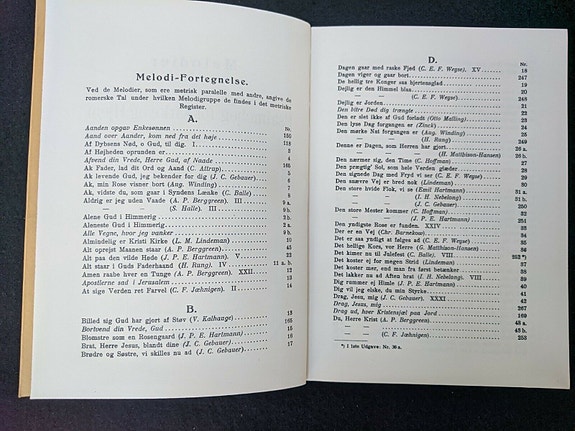 Melodi-Fortegnelse.
Ved de Melodier, som ere metrisk paralelle med andre, angive de
romerske Tal under hvilken Melodigruppe de findes i det metriske
Register.
A.
Nr.
Aanden opgav Enkesønnen 150
Aand over Aander, kom ned fra det høje
Af Dybsens Nød, o Gud, til dig. I 118
Af Højheden oprunden er 3
Afvend din Vrede, Herre Gud, af Naade 4
Ak Fader, lad dit Ord og Aand (C. Altrup) 165
Ak levende Gud, jeg bekender for dig (J. C. Gebauer) 5
Ak, min Rose visner bort (Aug. Winding) 6
Ak, vidste du, som gaar i Syndens Lænke (C. Balle) 7
Aldrig er jeg uden Vaade (A. P. Berggreen). III 9 a.
— — (S. Halle). III 9 b.
Alene Gud i Himmerig 2 a.
Aleneste Gud i Himmerig 2 b.
Alle Vegne, hvor jeg vanker 9 c.
Almindelig er Kristi Kirke (L. M. Lindeman) 10
Alt oprejst Maanen staar (A. P. Berggreen) 45
Alt paa den vilde Hede (J. P. E. Hartmann). V 23
Alt staar i Guds Faderhaand (H. Rung). IV 11 a. b.
Amen raabe hver en Tunge (A. P. Berggreen). XXII 12
Apostlerne sad i Jerusalem 13
At sige Verden ret Farvel (C. F. Jæhnigen). II 14
B.
Billed sig Gud har gjort af Støv (V. Kalhauge) 13
Bortvend din Vrede, Gud 165
Blomstre som en Rosengaard (J. P. E. Hartmann) 15
Brat, Herre Jesus, blandt dine (J. C. Gebauer) 16
Brødre og Søstre, vi skilles nu ad (J. C. Gebauer) 17
D.
Nr.
Dagen gaar med raske Fjed (C. E. F. Weyse). XV 18
Dagen viger og gaar bort 247
De hellig tre Konger saa hjertensglad 19
Dejlig er den Himmel blaa 20
— — (C. E. F. Weyse) 248
Dejlig er Jorden 21
Den bitre Død dig trængte 22
Den er slet ikke af Gud forladt (Otto Malling) 23
Den lyse Dag forgangen er (Zinck) 24
Den mørke Nat forgangen er (Aug. Winding)
— — (H. Rung) 249
Denne er Dagen, som Herren har gjort 26 a.
— — (H. Matthison-Hansen) 26 b.
Den nærmer sig, den Time (C. Hoffman) 27
Den pængtig' Sol, som hele Verden glæder 28
Den signede Dag med Fryd vi ser (C. E. F. Weyse) 29
Den snævre Vej er bred nok (Lindeman) 30
Den store hvide Flok, vi se (Emil Hartmann) 31 a.
— — (J. H. Nebelong) 31 b.
— — (J. C. Gebauer) 250
Den store Mester kommer (C. Hoffman) 32
— — (J. P. E. Hartmann) 251
Den yndigste Rose er funden. XXIV 33
Der er en Vej (Chr. Barnekow) 34
Det er saa yndigt at følges ad (C. E. F. Weyse) 35
Det hellige Kors, vor Herre (G. Matthison-Hansen) 36
Det kimer nu til Julefest (C. Balle). VIII 252 *)
Det koster ej for megen Strid (Lindeman) 37
Det koster mer, end man først betænker 38
Det lakker nu ad Aften brat (J. H. Nebelong). VIII 39
Dig rummer ej Himle (J. P. E. Hartmann) 40
Dig vil jeg elske, du min Styrke 41
Drag, Jesus, mig (J. C. Gebauer). XXXI 42
Drag, Jesus, mig 267
Drag ud, hver Kristensjæl paa Jord 169
Du, Herre Krist (A. P. Berggreen) 48 a.
— — 48 b.
— — (C. F. Jæhnigen) 253
*) I 1ste Udgave: Nr. 36 a.